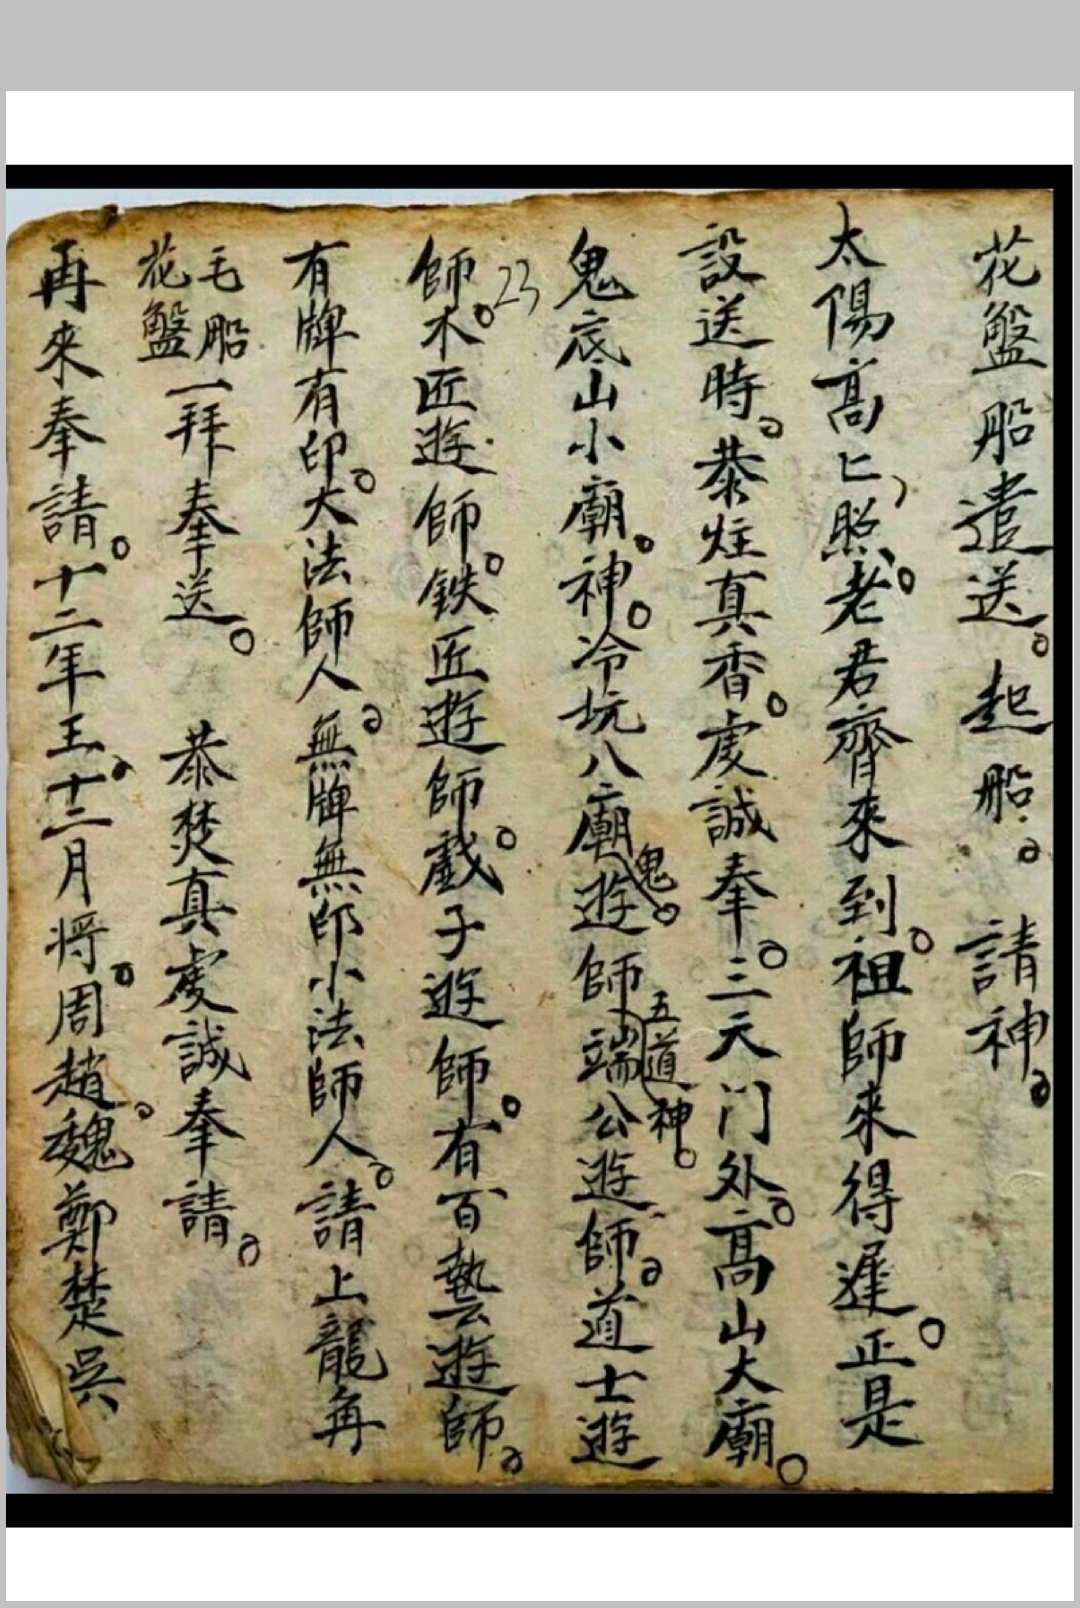 花盤船遣送。起船。請神。
太陽高匕照。老君齊來到。祖師來得遲。正是
設送時。恭炷真香。虔誠奉。三天门外。高山大廟。
鬼底山小廟。神。冷坑八廟鬼。遊師五道神。端公遊師。道士遊
師。木匠遊師。鉄匠遊師。戲子遊師。有百藝遊師。
23
有牌有印。大法師人。無牌無印小法師人。請上龍舟
毛船
花盤
一拜奉送。恭焚真虔誠奉請。
再來奉請。十二年王。十二月将。周趙魏鄭楚吳